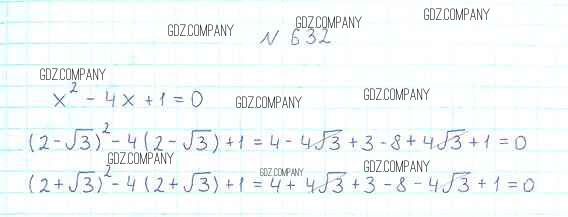 GDZ.COMPANY GDZ.COMPANY GDZ.COMPANY
N 632
GDZ.COMPANY
x² - 4x + 1 = 0
GDZ.COMPANY GDZ.COMPANY
(2-√3)² - 4(2-√3) + 1 = 4 - 4√3 + 3 - 8 + 4√3 + 1 = 0
GDZ.COMPANY GDZ.COMPANY GDZ.COMPANY
(2+√3)² - 4(2+√3) + 1 = 4 + 4√3 + 3 - 8 - 4√3 + 1 = 0